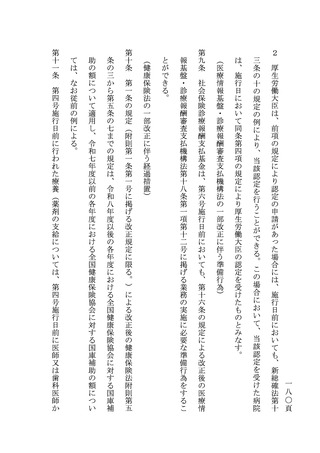 一八〇頁
２　厚生労働大臣は、前項の規定により認定の申請があった場合には、施行日前においても、新総確法第十
三条の十の規定の例により、当該認定を行うことができる。この場合において、当該認定を受けた病院
は、施行日において同条第四項の規定により厚生労働大臣の認定を受けたものとみなす。
（医療情報基盤・診療報酬審査支払機構法の一部改正に伴う準備行為）
第九条　社会保険診療報酬支払基金は、第六号施行日前においても、第十六条の規定による改正後の医療情
報基盤・診療報酬審査支払機構法第十八条第一項第十二号に掲げる業務の実施に必要な準備行為をするこ
とができる。
（健康保険法の一部改正に伴う経過措置）
第十条　第一条の規定（附則第一条第一号に掲げる改正規定に限る。）による改正後の健康保険法附則第五
条の三から第五条の七までの規定は、令和八年度以後の各年度における全国健康保険協会に対する国庫補
助の額について適用し、令和七年度以前の各年度における全国健康保険協会に対する国庫補助の額につい
ては、なお従前の例による。
第十一条　第四号施行日前に行われた療養（薬剤の支給については、第四号施行日前に医師又は歯科医師か